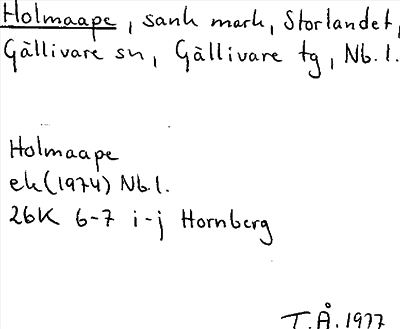 Holmaape, sank mark, Storlandet,
Gällivare sn, Gällivare tg, Nb.l.
Holmaape
ek(1974) Nb.l.
26K 6-7 i-j Hornberg
T.Å.1977